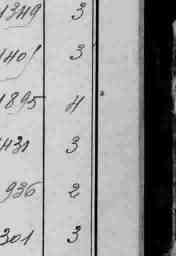 1349 3
140! 3
1895 4
1431 3
936 2
301 3